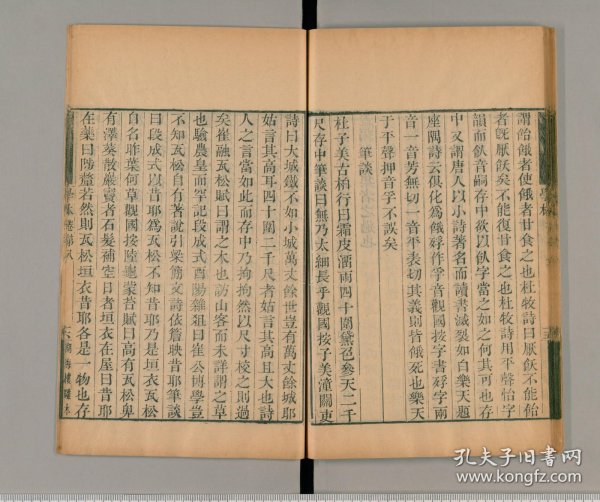 謂飴餓者使餓者甘食之也杜牧詩曰厭飫不能飴
者旣厭飫矣不能復甘食之也杜牧詩用平聲飴字
韻而飫音嗣存中欲以飫字當之如之何其可也存
中又謂唐人以小詩著名而讀書滅裂如白樂天題
座隅詩云俱化為餓殍作孚音觀國按字書殍字兩
音一音芳無切一音平表切其義則皆餓死也樂天
于平聲押音孚不誤矣
筆談
杜子美古柏行曰霜皮溜雨四十圍黛色參天二千
尺存中筆談曰無乃太細長乎觀國按子美潼關吏
詩曰大城鐵不如小城萬丈餘世豈有萬丈餘城耶
姑言其高耳四十圍二千尺者姑言其高且大也詩
人之言當如此而存中乃拘拘然以尺寸校之則過
矣崔融瓦松賦曰謂之木也訪山客而未詳謂之草
也驗農皇而罕記段成式酉陽雜俎曰崔公博學豈
不知瓦松自有著說引梁簡文詩依簷映昔耶筆談
曰段成式以昔耶為瓦松不知昔耶乃是垣衣瓦松
自名昨葉何草觀國按陸龜蒙苔賦曰高有瓦松卑
有澤葵散巖竇者石髮補空田者垣衣在屋曰昔耶
在藥曰陟釐若然則瓦松垣衣昔耶各是一物也存
學林
學林卷第八
孔夫子旧书网
www.kongfz.com